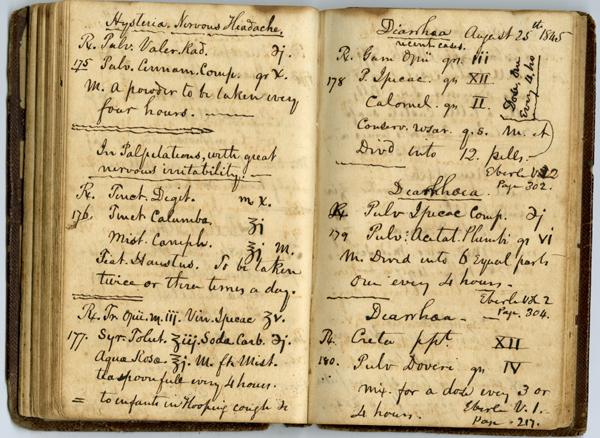 Hysteria. Nervous Headache.
℞. Pulv. Valer. Rad. ℈j.
175 Pulv. Cinnam. Comp. gr x.
M. a powder to be taken every
four hours.
In Palpitations, with great
nervous irritability.
℞. Tinct. Digit. m x.
176. Tinct Calumba. ʒj
Mist. Camph. ℥j M.
Fiat Haustus. To be taken
twice or three times a day.
℞. Tr. Opii. m. iij. Vin. Ipecac ʒv.
177. Syr. Tolut. ʒiij. Soda Carb. ℈j.
Aqua Rosæ ℥j. M. ft Mist.
teaspoonfull every 4 hours.
= to infants in Hooping cough &c
Diarrhœa August 25th 1845
recent cases.
℞. Gum Opii grs iii
178 P. Ipecac. grs XII
Calomel. grs II
Dose One
Every 4 ho
Conserv. rosar. q. s. M. et
Divd into 12. pills.
Eberle V. 2
Page 302.
Diarrhœa.
℞ Pulv Ipecac Comp. ℈j
179 Pulv. Acetat. Plumbi grs vi
M. Divid into 6 Equal parts
One every 4 hours.
Eberle Vol. 2
Page. 304.
Diarrhœa.
℞. Creta ppt XII
180. Pulv Doveri grs IV
mix. for a dose every 3 or
4 hours.
Eberle V. 1.
Page. 217.